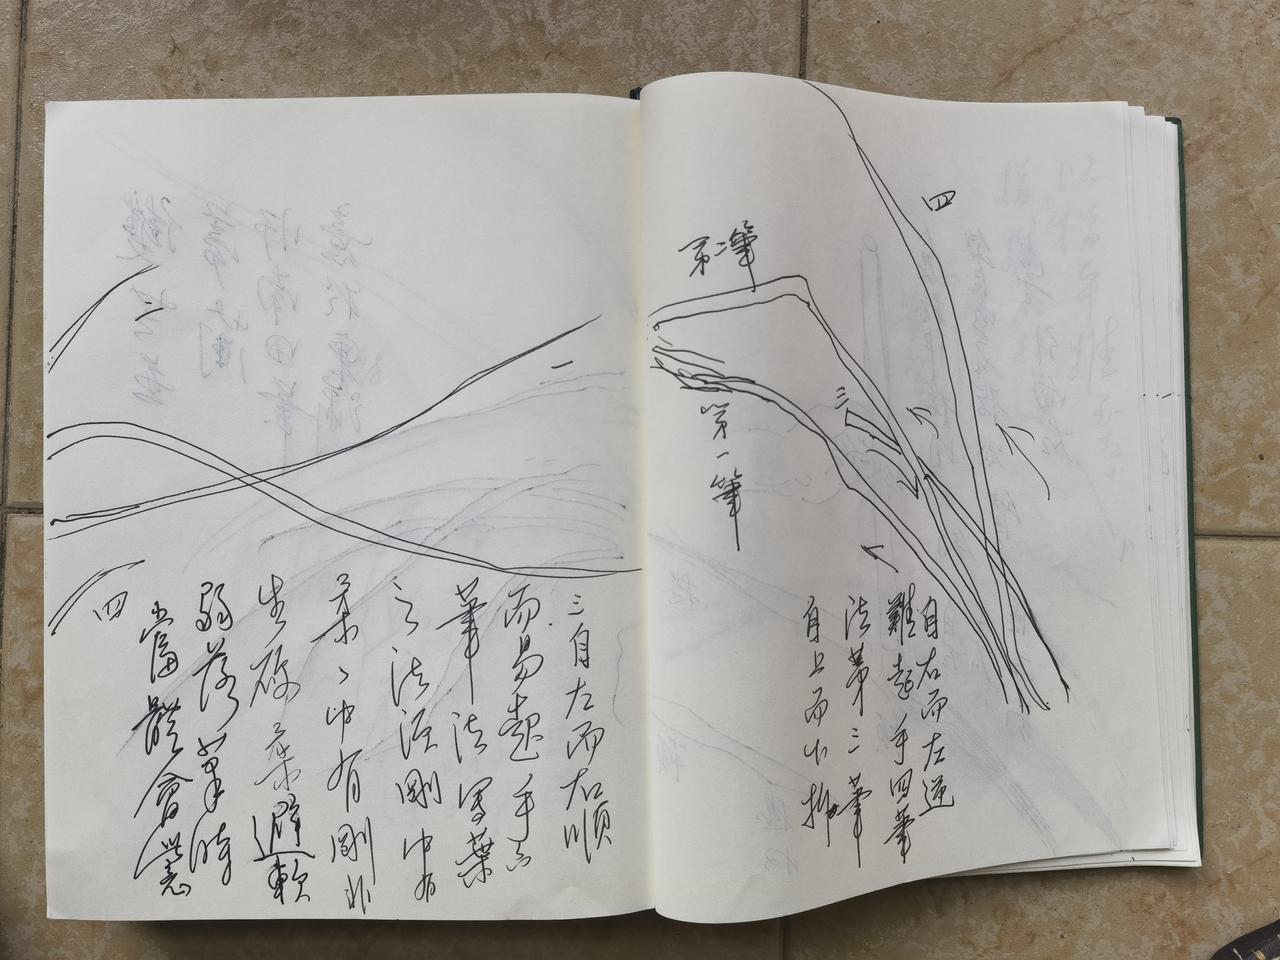 四
第二筆
三
第一筆
自右而左逆
難起手四筆
法第三筆
自上而下
一
三自左而右順
而易起手
筆法寫葉
之法須剛中有
柔〻中有剛非
生硬柔避軟
弱落筆時
當體會
四